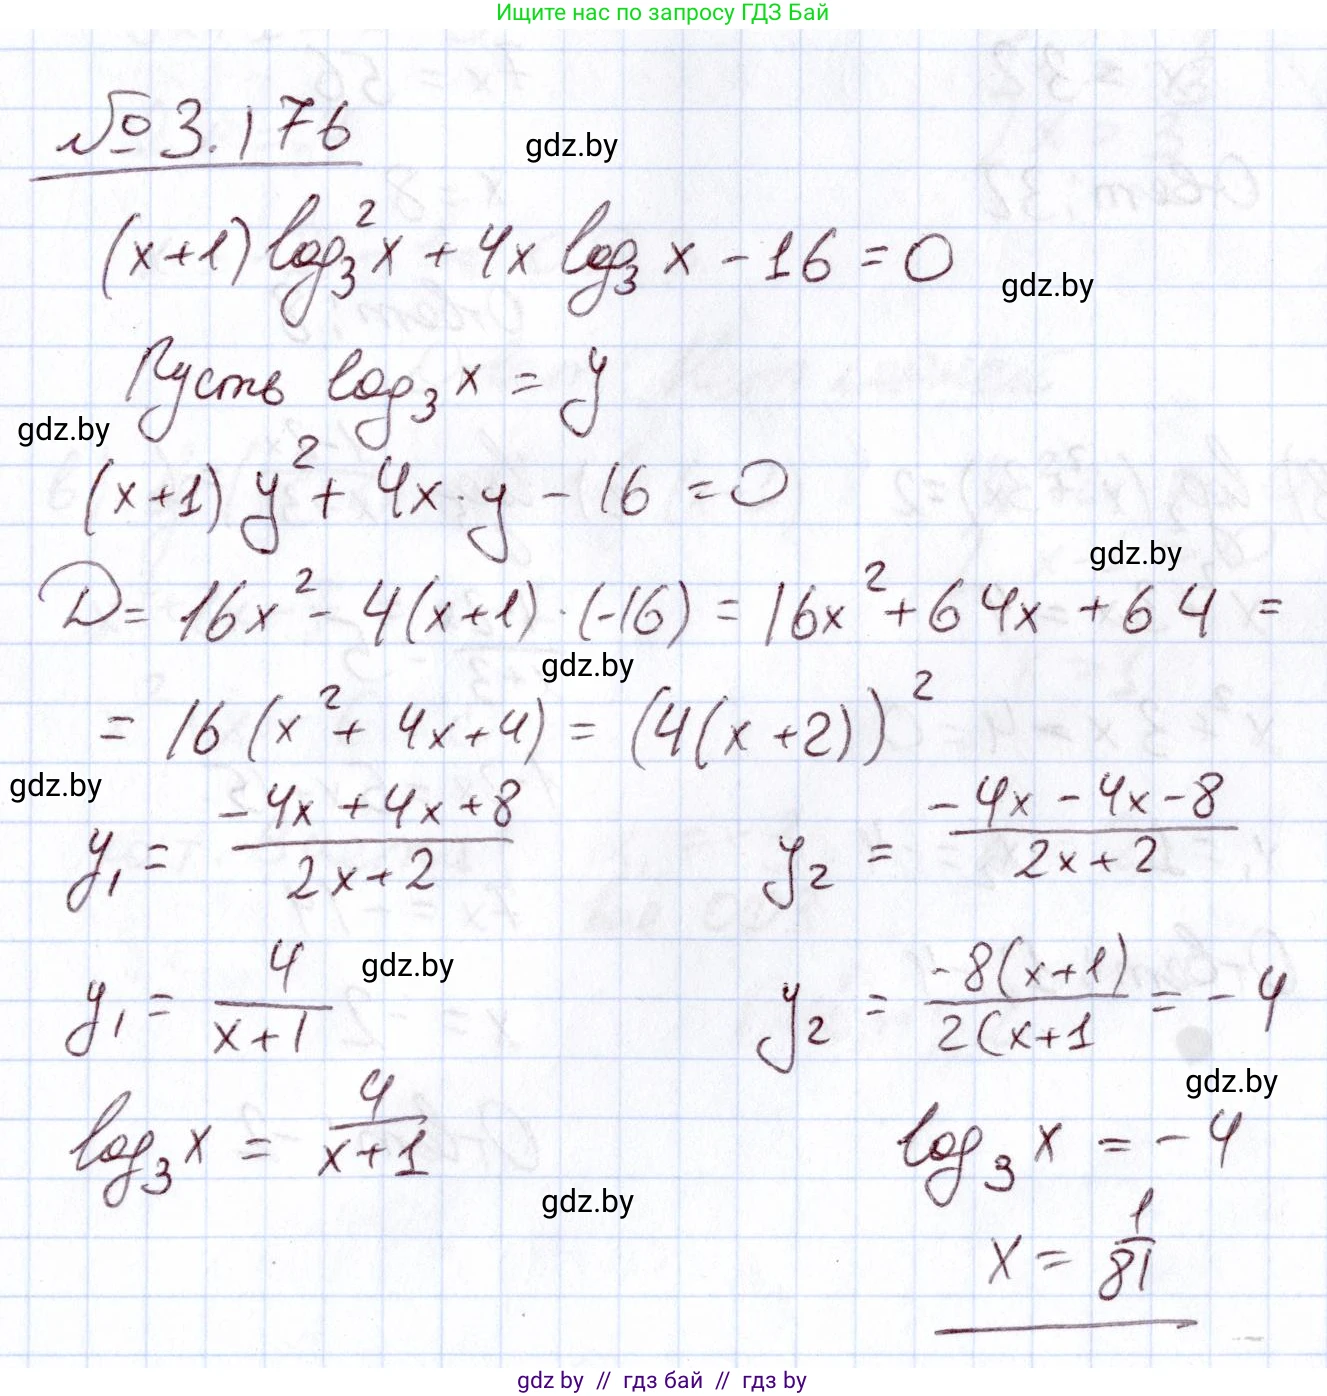 Ищите нас по запросу ГДЗ Бай
№ 3.176
gdz.by
(x+1) log₃² x + 4x log₃ x - 16 = 0
gdz.by
Пусть log₃ x = y
gdz.by
(x+1) y² + 4x · y - 16 = 0
gdz.by
D = 16x² - 4(x+1) · (-16) = 16x² + 64x + 64 =
gdz.by
= 16 (x² + 4x + 4) = (4(x+2))²
gdz.by
y₁ = (-4x + 4x + 8)/(2x + 2) y₂ = (-4x - 4x - 8)/(2x + 2)
gdz.by
y₁ = 4/(x+1) y₂ = -8(x+1)/2(x+1 = -4
gdz.by
log₃ x = 4/(x+1) log₃ x = -4
gdz.by
x = 1/81
gdz by // гдз бай // гдз by